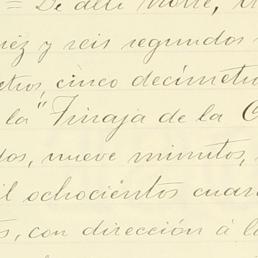 = De allí Norte,
diez y seis segundos
metros, cinco decímetro
la "Tinaja de la C
dos, nueve minutos,
mil ochocientos cuar
s, con dirección á la